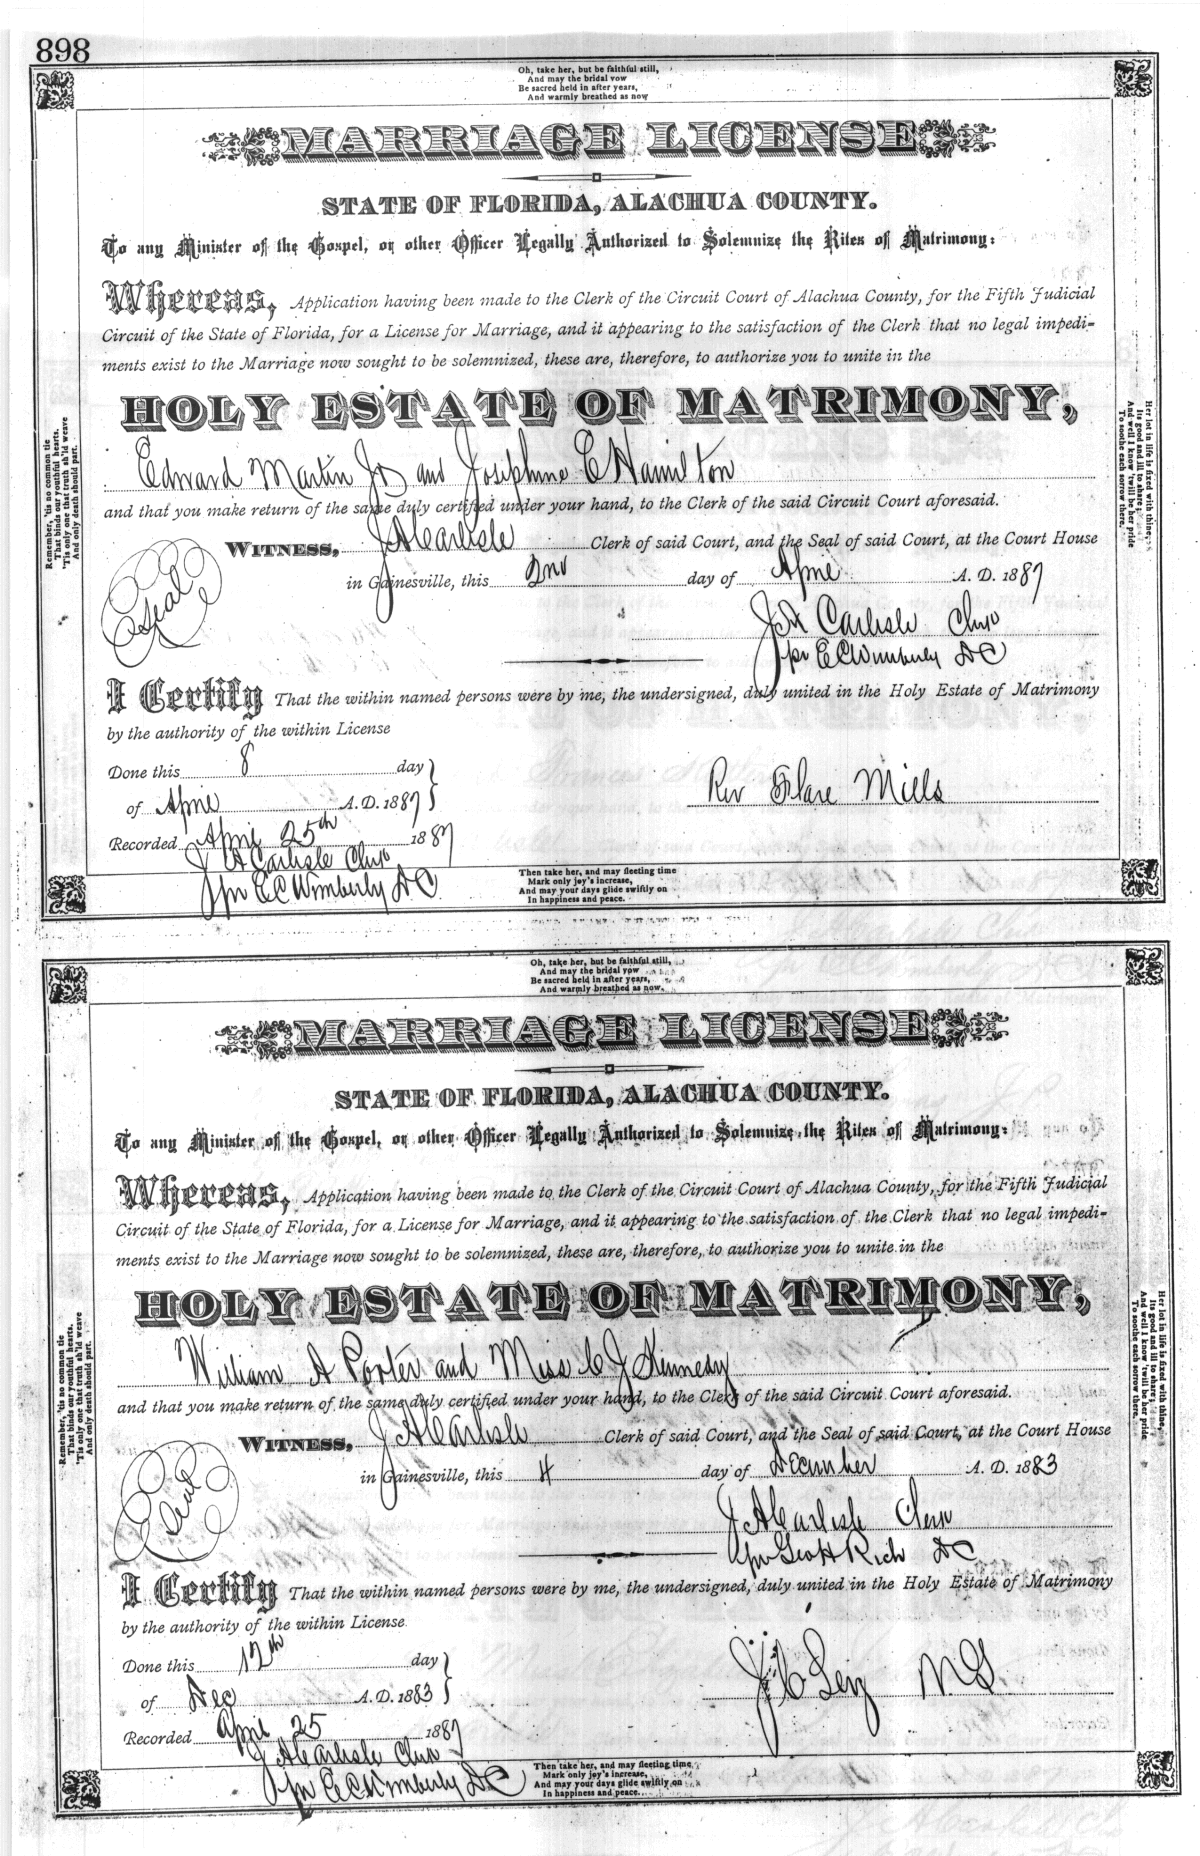 898
Oh, take her, but be faithful still,
And may the bridal vow
Be sacred held in after years,
And warmly breathed as now
MARRIAGE LICENSE
STATE OF FLORIDA, ALACHUA COUNTY.
To any Minister of the Gospel, or other Officer Legally Authorized to Solemnize the Rites of Matrimony:
Whereas, Application having been made to the Clerk of the Circuit Court of Alachua County, for the Fifth Judicial
Circuit of the State of Florida, for a License for Marriage, and it appearing to the satisfaction of the Clerk that no legal impedi-
ments exist to the Marriage now sought to be solemnized, these are, therefore, to authorize you to unite in the
HOLY ESTATE OF MATRIMONY,
Edward Martin Jr and Josephine E Hamilton
and that you make return of the same duly certified under your hand, to the Clerk of the said Circuit Court aforesaid.
WITNESS, J A Carlisle Clerk of said Court, and the Seal of said Court, at the Court House
Seal
in Gainesville, this 2nd day of April A. D. 1887
J A Carlisle Clerk
pr E C Wimberly D C
I Certify That the within named persons were by me, the undersigned, duly united in the Holy Estate of Matrimony
by the authority of the within License
Done this 8 day
of April A. D. 1887
Rev Mills
Recorded April 25th 1887
J A Carlisle Clerk
pr E C Wimberly D C
Then take her, and may fleeting time
Mark only joy's increase,
And may your days glide swiftly on
In happiness and peace.
Remember, 'tis no common tie
That binds our youthful hearts.
'Tis only one that truth sh'ld weave
And only death should part.
Her lot in life is fixed with thine,
Its good and ill to share;
And well I know 'twill be her pride
To soothe each sorrow there.
Oh, take her, but be faithful still,
And may the bridal vow
Be sacred held in after years,
And warmly breathed as now.
MARRIAGE LICENSE
STATE OF FLORIDA, ALACHUA COUNTY.
To any Minister of the Gospel, or other Officer Legally Authorized to Solemnize the Rites of Matrimony:
Whereas, Application having been made to the Clerk of the Circuit Court of Alachua County, for the Fifth Judicial
Circuit of the State of Florida, for a License for Marriage, and it appearing to the satisfaction of the Clerk that no legal impedi-
ments exist to the Marriage now sought to be solemnized, these are, therefore, to authorize you to unite in the
HOLY ESTATE OF MATRIMONY,
William A Porter and Miss C J Kennedy
and that you make return of the same duly certified under your hand, to the Clerk of the said Circuit Court aforesaid.
WITNESS, J A Carlisle Clerk of said Court, and the Seal of said Court, at the Court House
Seal
in Gainesville, this 4 day of December A. D. 1883
J A Carlisle Clerk
pr Geo H Rich D C
I Certify That the within named persons were by me, the undersigned, duly united in the Holy Estate of Matrimony
by the authority of the within License
Done this 12th day
of Dec A. D. 1883
J C M G
Recorded April 25 1887
J A Carlisle Clerk
pr E C Wimberly D C
Then take her, and may fleeting time
Mark only joy's increase,
And may your days glide swiftly on
In happiness and peace.
Remember, 'tis no common tie
That binds our youthful hearts.
'Tis only one that truth sh'ld weave
And only death should part.
Her lot in life is fixed with thine,
Its good and ill to share;
And well I know 'twill be her pride
To soothe each sorrow there.